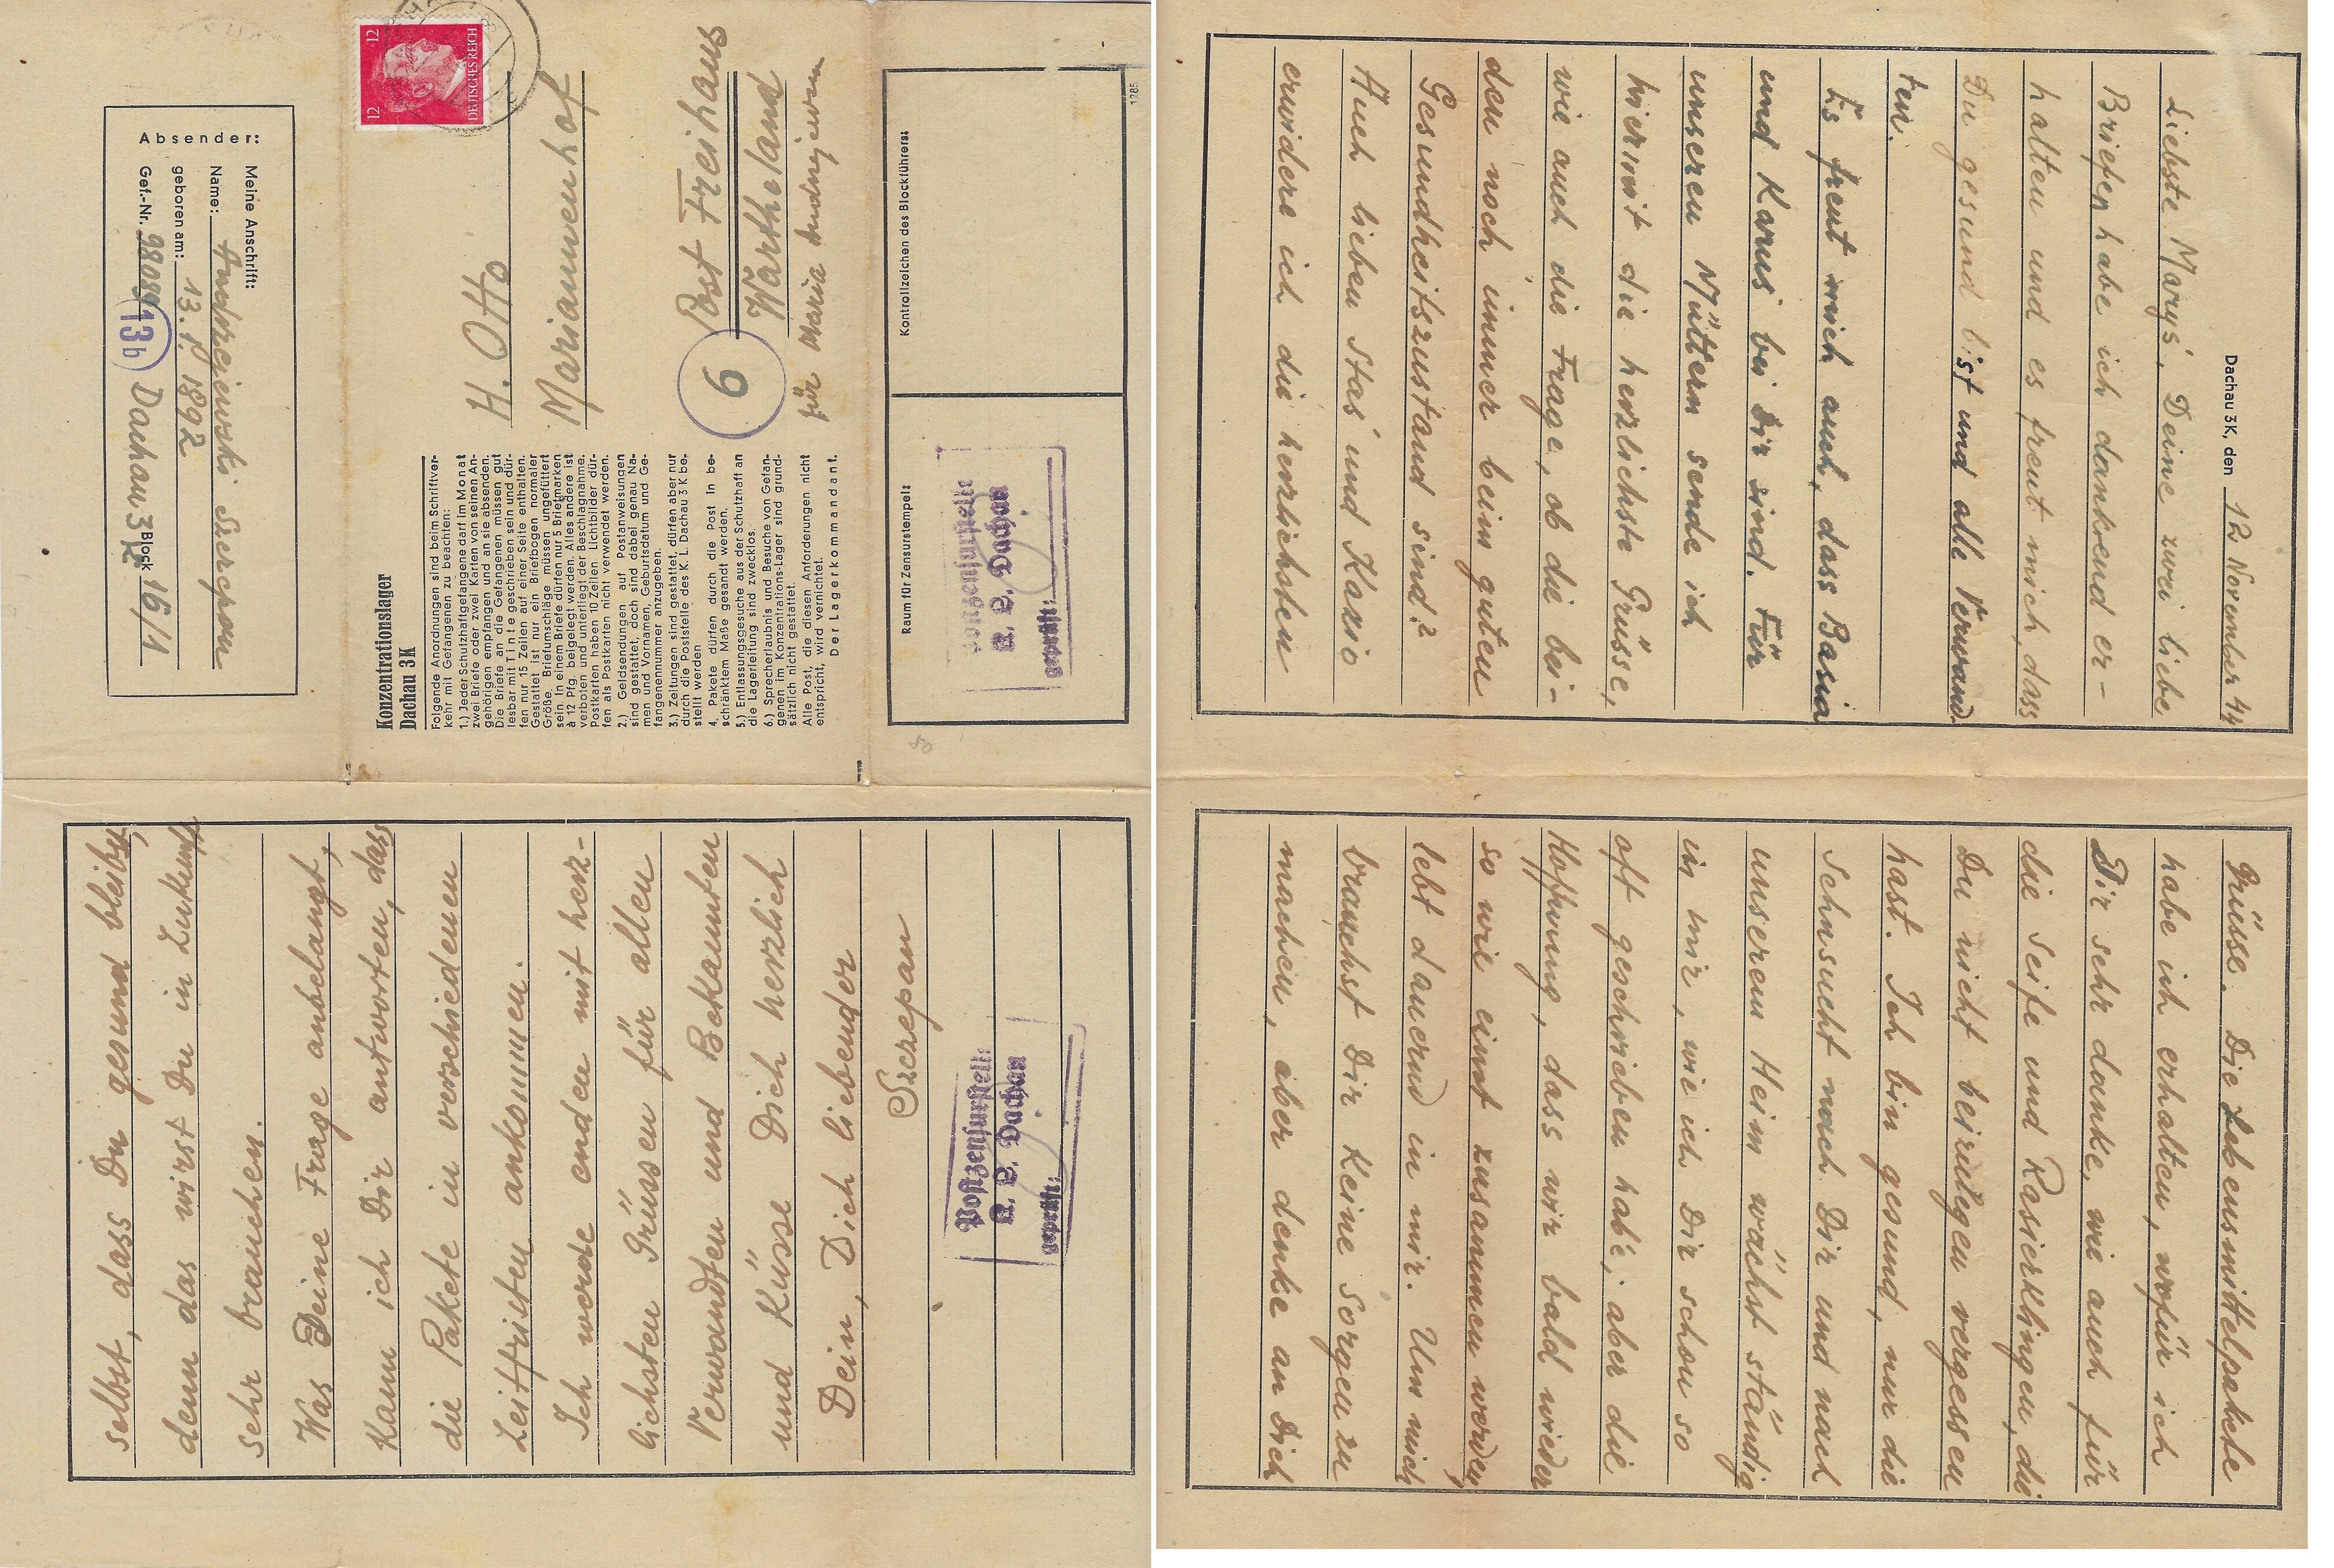 Absender:
Meine Anschrift:
Name: Andrzejewski Szczepan
geboren am: 13. 1892
Gef.-Nr. 98089 Dachau 3K Block 16/1
13b
Konzentrationslager
Dachau 3K
Folgende Anordnungen sind beim Schriftver-
kehr mit Gefangenen zu beachten:
1.) Jeder Schutzhaftgefangene darf im Monat
zwei Briefe oder zwei Karten von seinen An-
gehörigen empfangen und an sie absenden.
Die Briefe an die Gefangenen müssen gut
lesbar mit Tinte geschrieben sein und dür-
fen nur 15 Zeilen auf einer Seite enthalten.
Gestattet ist nur ein Briefbogen normaler
Größe. Briefumschläge müssen ungefüttert
sein. In einem Briefe dürfen nur 5 Briefmarken
à 12 Pfg. beigelegt werden. Alles andere ist
verboten und unterliegt der Beschlagnahme.
Postkarten haben 10 Zeilen. Lichtbilder dür-
fen als Postkarten nicht verwendet werden.
2.) Geldsendungen auf Postanweisungen
sind gestattet, doch sind dabei genau Na-
men und Vornamen, Geburtsdatum und Ge-
fangenennummer anzugeben.
3.) Zeitungen sind gestattet, dürfen aber nur
durch die Poststelle des K. L. Dachau 3 K be-
stellt werden
4. Pakete dürfen durch die Post in be-
schränktem Maße gesandt werden.
5.) Entlassungsgesuche aus der Schutzhaft an
die Lagerleitung sind zwecklos.
6.) Sprecherlaubnis und Besuche von Gefan-
genen im Konzentrations-Lager sind grund-
sätzlich nicht gestattet.
Alle Post, die diesen Anforderungen nicht
entspricht, wird vernichtet.
Der Lagerkommandant.
12 12
DEUTSCHES REICH
H. Otto
Mariannenhof
6
Post Freihaus
Wartheland
für Maria
Raum für Zensurstempel:
Kontrollzeichen des Blockführers:
Postzensurstelle
K. L. Dachau
geprüft:
1285
Dachau 3K, den 12 November 44
Liebste Maryś, Deine zwei liebe
Briefen habe ich dankend er-
halten und es freut mich, dass
Du gesund bist und alle Verwand-
ten.
Es freut mich auch, dass Basia
und Karuś bei Dir sind. Für
unseren Müttern sende ich
hiermit die herzlichste Grüsse,
wie auch die Frage, ob die bei-
den noch immer beim guten
Gesundheitszustand sind?
Auch lieben Staś und Kazio
erwidere ich die herzlichsten
Grüsse. Die Lebensmittelpakete
habe ich erhalten, wofür ich
Dir sehr danke, wie auch für
die Seife und Rasierklingen, die
Du nicht beizulegen vergessen
hast. Ich bin gesund, nur die
Sehnsucht nach Dir und nach
unserem Heim wächst ständig
in mir, wie ich Dir schon so
oft geschrieben habe; aber die
Hoffnung, dass wir bald wieder
so wie einst zusammen werden,
lebt dauernd in mir. Um mich
brauchst Dir keine Sorgen zu
machen, aber denke an Dich
selbst, dass Du gesund bleibst,
denn das wirst Du in Zukunft
sehr brauchen.
Was Deine Frage anbelangt,
kann ich Dir antworten, dass
die Pakete in verschiedenen
Zeitfristen ankommen.
Ich werde enden mit herz-
lichsten Grüssen für allen
Verwandten und Bekannten
und Küsse Dich herzlich
Dein, Dich liebender
Szczepan
Postzensurstelle
K. L. Dachau
geprüft: